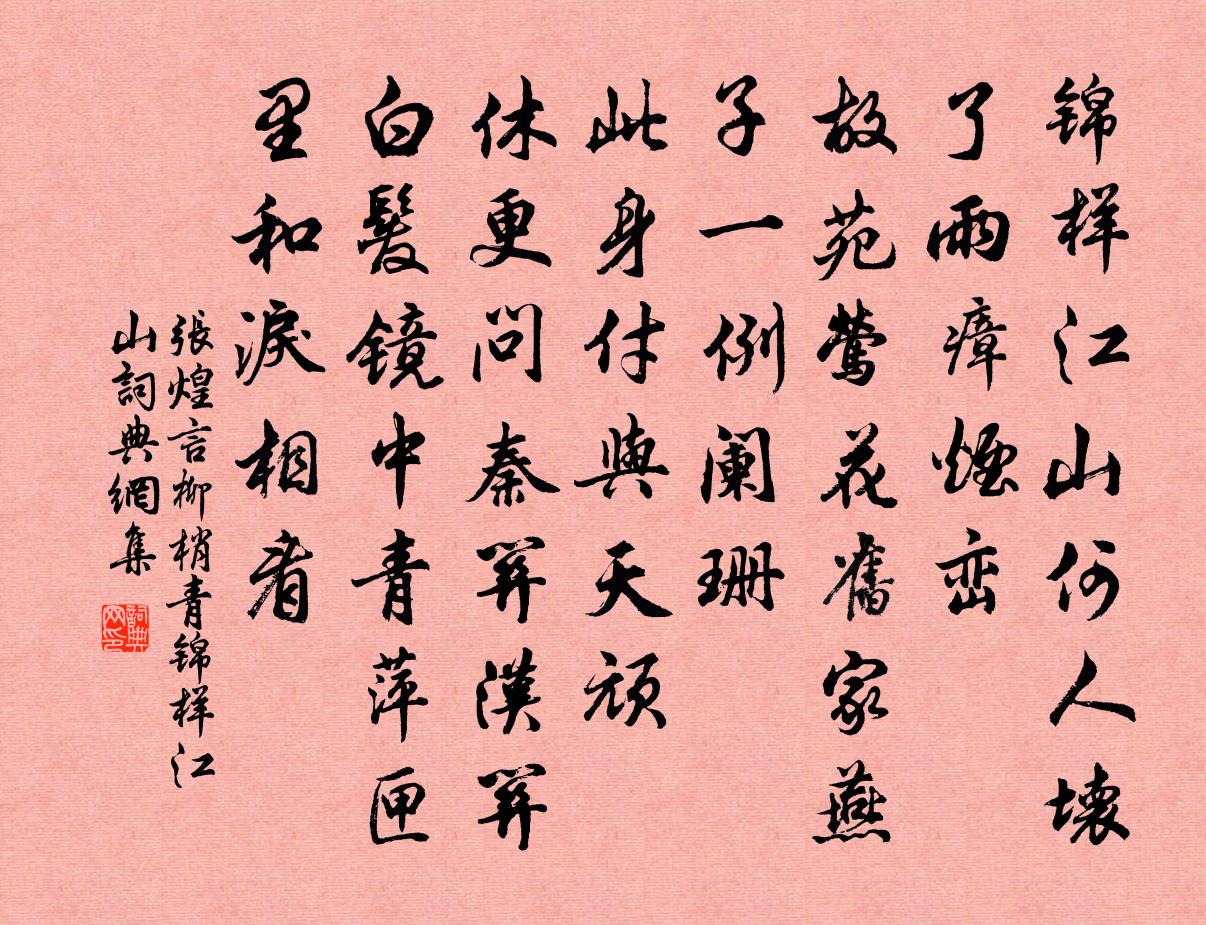 锦样江山何人坏
了雨瘴煙峦
故苑鶯花舊家燕
子一例阑珊
此身付與天顽
休更问秦関漢関
白髮镜中青萍匣
里和淚相看
張煌言柳梢青锦样江
山詞典網集
詞典网印